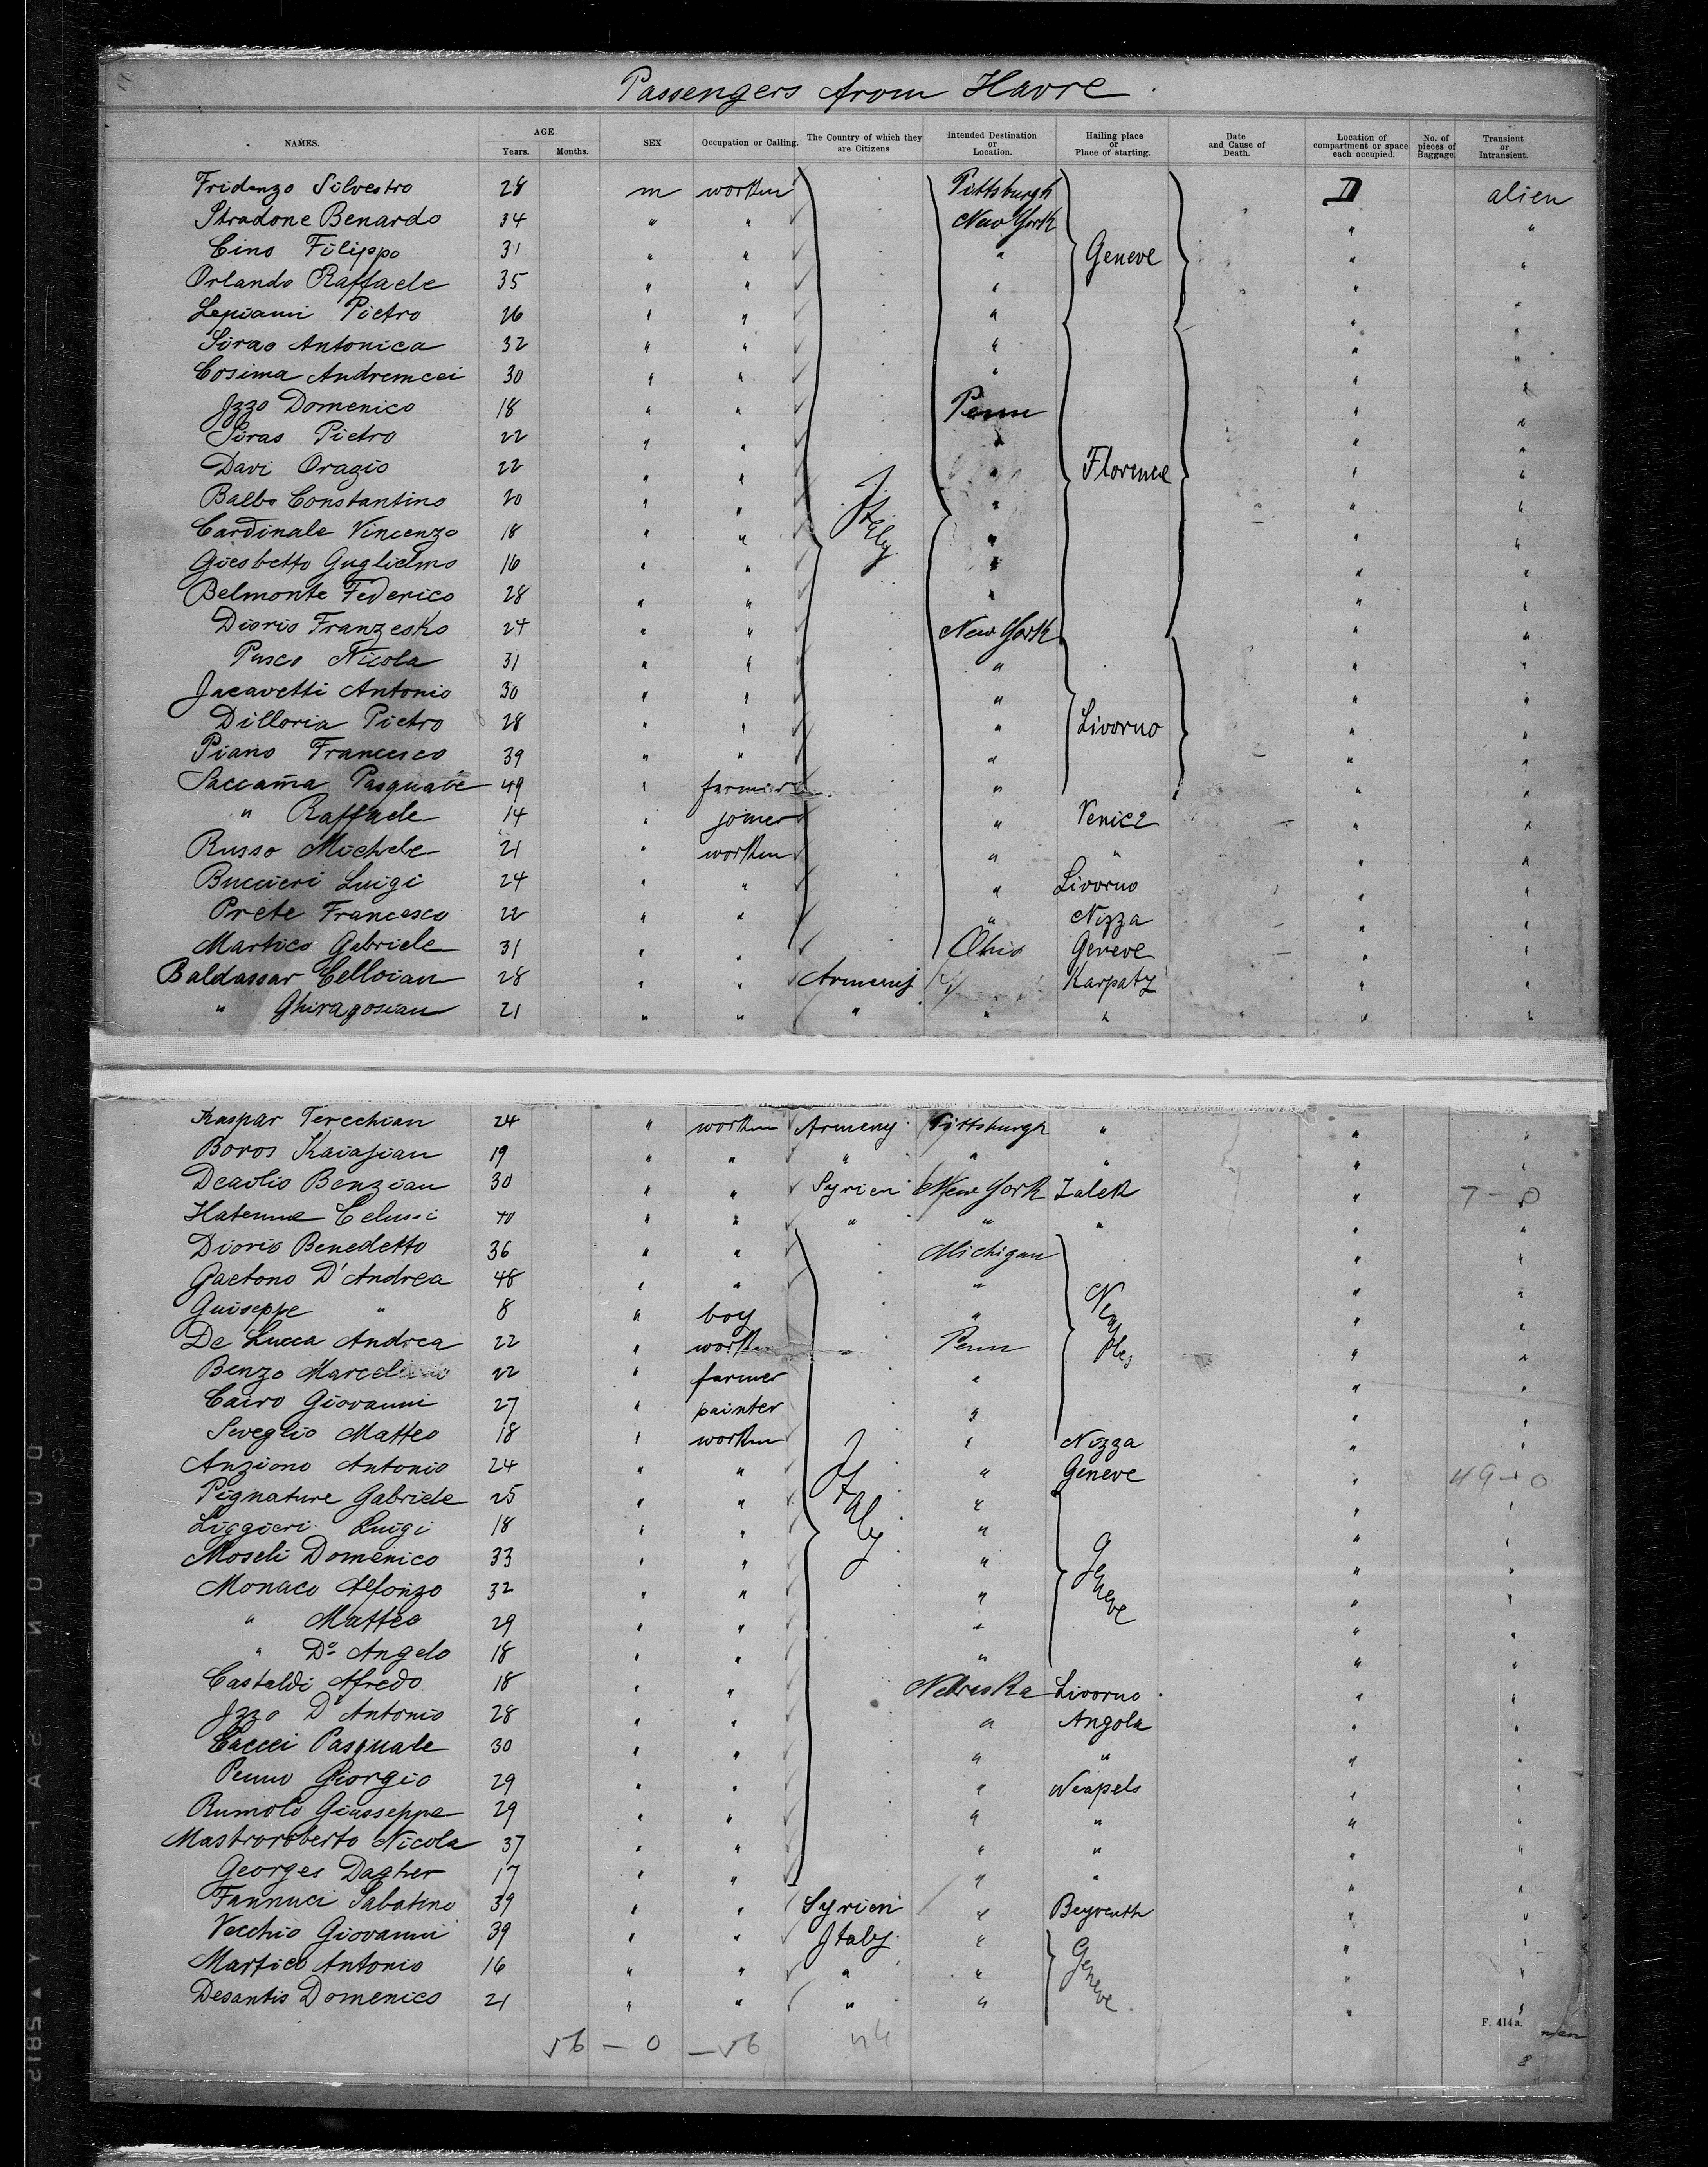 Passengers from Havre.
NAMES. AGE Years. Months. SEX Occupation or Calling. The Country of which they are Citizens Intended Destination or Location. Hailing place or Place of starting. Date and Cause of Death. Location of compartment or space each occupied. No. of pieces of Baggage. Transient or Intransient.
Fridenzo Silvestro 28 m workm Pittsburgh D alien
Stradone Benardo 34 " " New York " "
Cino Filippo 31 " " " Geneve " "
Orlando Raffaele 35 " " " " "
Lepianni Pietro 26 " " " " "
Sirao Antonica 32 " " " " "
Cosima Andremcei 30 " " " " "
Jzzo Domenico 18 " " Penn " "
Siras Pietro 22 " " " " "
Davi Orazio 22 " " " Florence " "
Balbo Constantino 20 " " Italy " " "
Cardinale Vincenzo 18 " " " " "
Giesbetto Guglielmo 16 " " " " "
Belmonte Federico 28 " " " " "
Diorio Franzesko 24 " " New York " "
Pusco Nicola 31 " " " " "
Jacavetti Antonio 30 " " " " "
Dilloria Pietro 28 " " " Livorno " "
Piano Francesco 39 " " " " "
Saccama Pasquale 49 " farmer " " "
" Raffaele 14 " joiner " Venice " "
Russo Michele 21 " workm " " " "
Buccieri Luigi 24 " " " Livorno " "
Prete Francesco 22 " " " Nizza " "
Martico Gabriele 31 " " Ohio Geneve " "
Baldassar Celloian 28 " " Armeny Karpatz " "
" Ghiragosian 21 " " " " " " "
Kaspar Terechian 24 " workm Armeny Pittsburgh " " "
Boros Kaiajian 19 " " " " " " "
Deailio Benzian 30 " " Syrien New York Zalek " 7-0
Hatenne Celussi 40 " " " " " " "
Diorio Benedetto 36 " " Michigan " "
Gaetono D'Andrea 48 " " " " "
Guiseppe " 8 " boy " Neaples " "
De Lucca Andrea 22 " workm Penn " "
Benzo 22 " farmer " " "
Cairo Giovanni 27 " painter " " "
Seveglio Matteo 18 " workm " Nizza " "
Anziono Antonio 24 " " " Geneve " 49-0
Pignature Gabriele 25 " " Italy " " "
Liggieri Luigi 18 " " " " "
Moseli Domenico 33 " " " Geneve " "
Monaco Alfonzo 32 " " " " "
" Matteo 29 " " " " "
" Do Angelo 18 " " " " "
Castaldi Alfredo 18 " " Nebraska Livorno " "
Jzzo D'Antonio 28 " " " Angola " "
Caccei Pasquale 30 " " " " " "
Penno Giorgio 29 " " " Neapels " "
Rumolo Giusseppe 29 " " " " " "
Mastroroberto Nicola 37 " " " " " "
Georges Dagher 17 " " " " " "
Fannuci Sabatino 39 " " Syrien " Beyreuth " "
Vecchio Giovanni 39 " " Italy " " "
Martico Antonio 16 " " " " Geneve " "
Desantis Domenico 21 " " " " " "
F. 414 a.
56 - 0 - 56